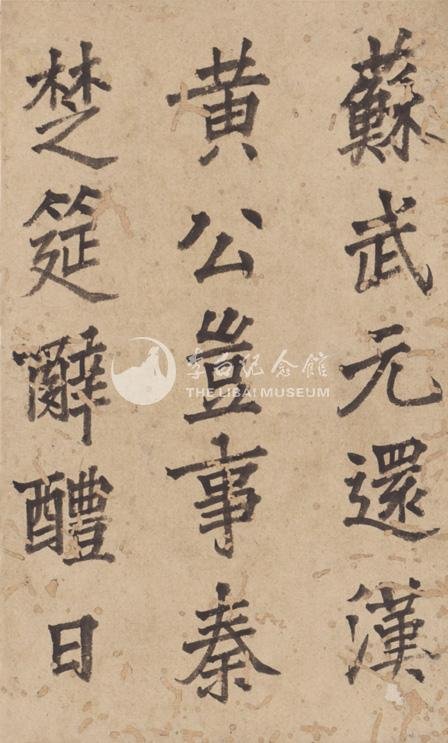 蘇武元還漢
黃公豈事秦
楚筵辭醴日
李白纪念館
THE LIBAI MUSEUM